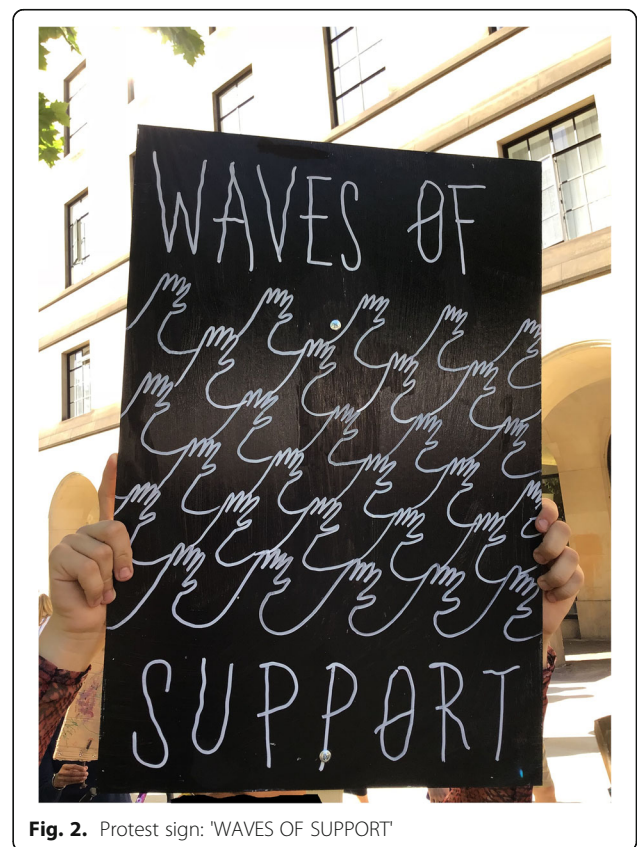 WAVES OF
SUPPORT
Fig. 2. Protest sign: 'WAVES OF SUPPORT'